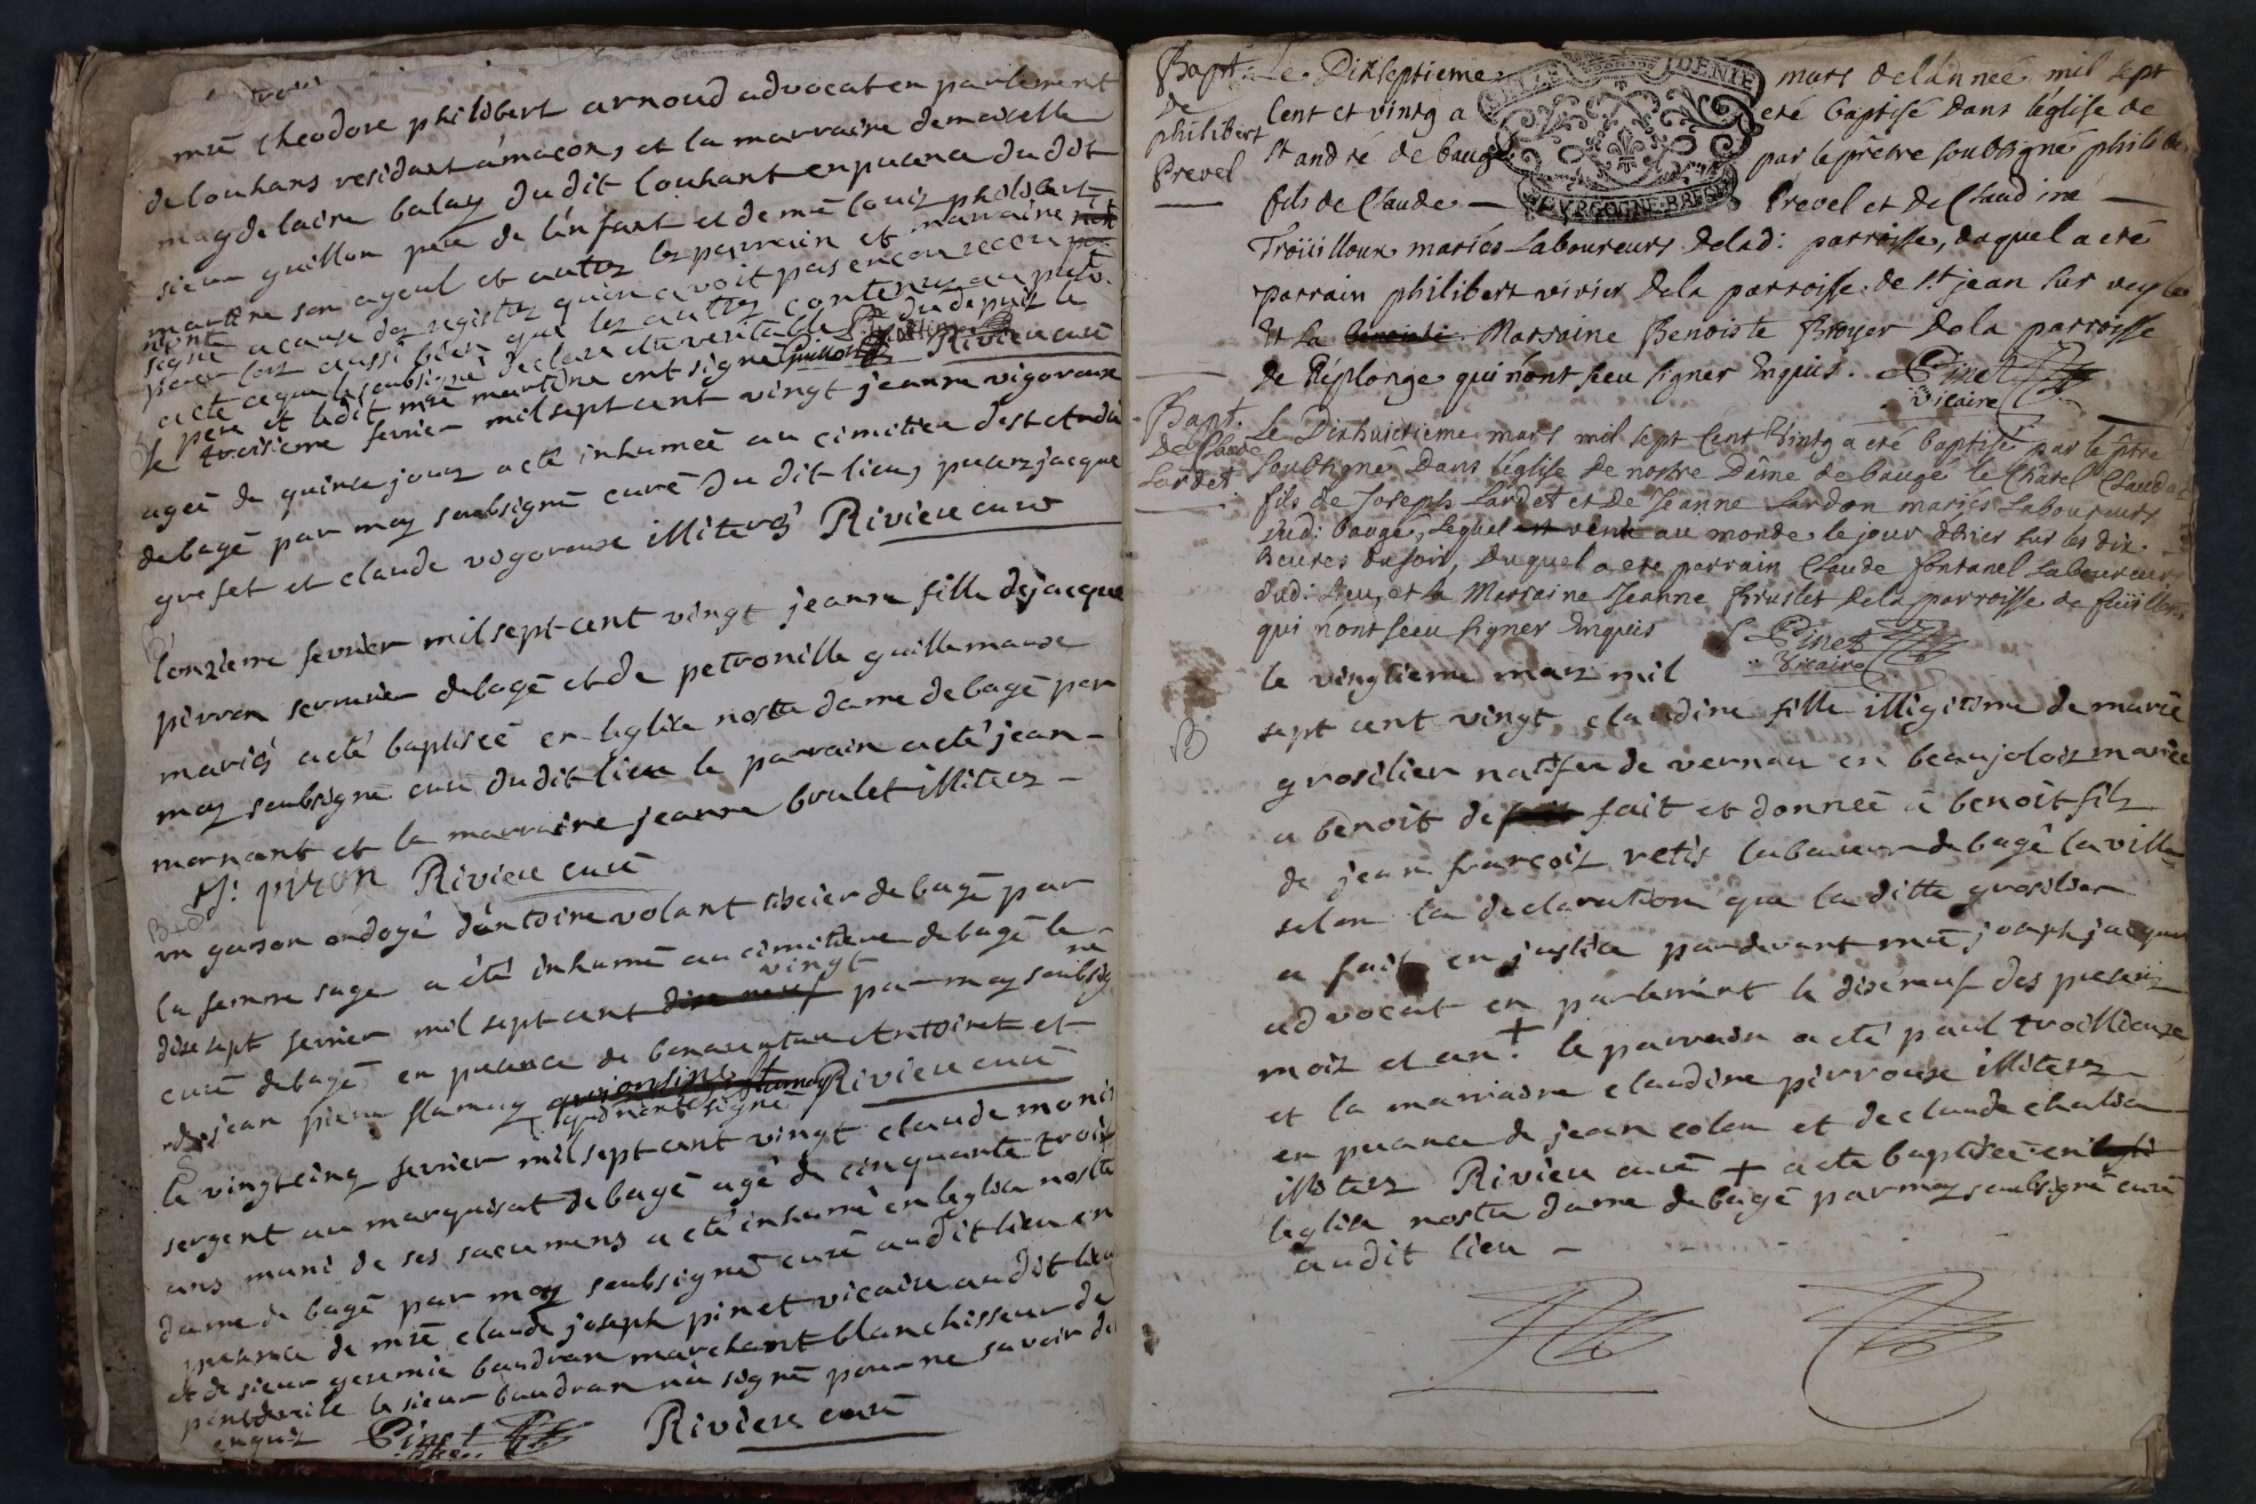 mre theodore philibert arnoud advocat en parlement
de louhans residant a macon, et la marraine demoiselle
magdelaine balay du dit louhant en puance du dit
sieur guillon pere de l'enfant et de mre louis philibert
martine son ayeul et autes les parrain et marraine
signé a cause des registes qu'on avoit pas encor receu
pour lors aussi bien que les autes contenus au
acte ce que le soubsigné declare etu veritable
le pere et ledit mre martine ont signé Guillon Riviere curé
le troisieme fevrier mil sept cent vingt jeanne vigoreuse
ageé de quinze jours a eté inhumeé au cimitiere de st André
de bagé par moy soubsigné curé du dit lieu, puenz jacque
grefet et claude vigoreuse illiterés Riviere curé
l'onzieme fevrier mil sept cent vingt jeanne fille de jacque
pirron serrurier de bagé et de petronille guillemause
mariés a eté baptiseé en leglise noste dame de bagé par
moy soubsigné curé du dit lieu le parrain a eté jean
mornant et la marraine jeanne brulet illiteres
J: piron Riviere curé
un garson ondoyé d'antoine volant tissier de bagé par
la femme sage a été inhumé au cimitiere de bagé le
dix sept fevrier mil sept cent dix neuf vingt par moy soubsigné
curé de bagé en puance de bonaventure Antoinet et
de jean pierre flamug qui ont signé Riviere curé
le vingt cinq fevrier mil sept cent vingt claude monin
sergent au marquisat de bagé agé de cinquante trois
ans muni de ses sacumens a eté inhumé en leglise noste
dame de bagé par moy soubsigné curé audit lieu en
puance de mre claude joseph pinet vicaire audit lieu
et de sieur geremie baudran marchant blanchisseur de
pontdevile le sieur baudran n'a signé pour ne savoir de
enquis Pinet Riviere curé
Bapt.
de
philibert
Prevel
Le Dixseptieme mars de l'anneé mil sept
Cent et vintg a eté baptisé dans l'église de
St andré de baugé par le prêtre soubsigné philibert
fils de Claude Prevel et de Claudine
Troüilloux mariés Laboureurs de lad: parroisse, duquel a eté
parrain philibert vivier de la parroisse de St jean sur veyle
Et la benoiste Marraine Benoiste Broyer de la parroisse
de Réplonge qui n'ont sceu signer Enquis. Pinet
vicaire
Bapt.
De Claude
Lardet
Le Dixhuictieme mars mil sept Cent Vintg a eté baptisé par le ptre
soubsigné Dans l'église de nostre Dâme de baugé le Châtel Claude
fils de Joseph Lardet et de Jeanne Lardon mariés Laboureurs
dud: baugé, Lequel est venu au monde le jour d'hier sur les dix
heures du soir, Duquel a eté parrain Claude fontanel Laboureur
dud: Lieu, et la Marraine Jeanne Bruslet de la parroisse de
qui n'ont sceu signer Enquis Pinet
Vicaire
B
le vingtieme mars mil
sept cent vingt claudine fille illigitime de marie
grosilier natifue de vernau en beaujolois mariée
a benoît de fait et donneé a benoit fils
de jean françois retis laboureur de bagé la ville
selon la declaration que la ditte grosilier
a fait en justice pardevant mre joseph jacquet
advocat en parlement le dixneuf des presens
mois et an. + le parrain a eté paul troillieuse
et la marraine claudine pirrouse illiteres
en puance de jean colon et de claude chalon
illiteres Riviere curé + a eté baptiseé en
leglise noste dame de bagé par moy soubsigné curé
audit lieu